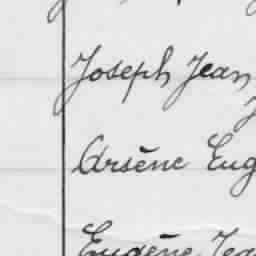 Joseph Jean
Arsène Eug
Eugène Jea